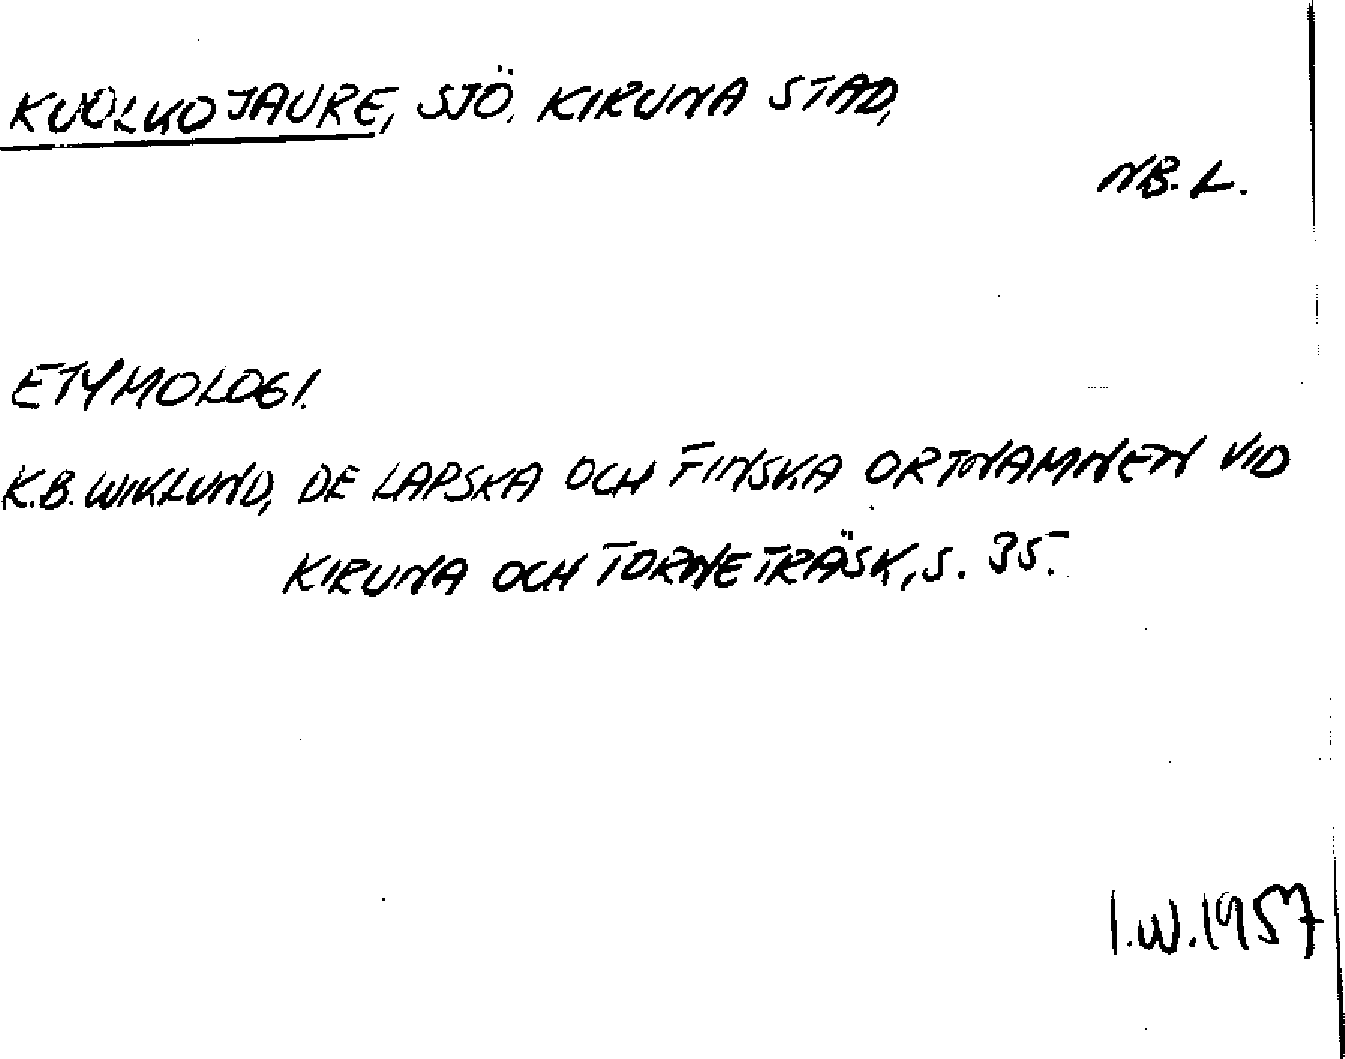 KUOLKOJAURE, SJÖ. KIRUNA STAD,
NB. L.
ETYMOLOGI.
K.B. WIKLUND, DE LAPSKA OCH FINSKA ORTNAMNEN VID
KIRUNA OCH TORNETRÄSK, S. 35.
I.W. 1957